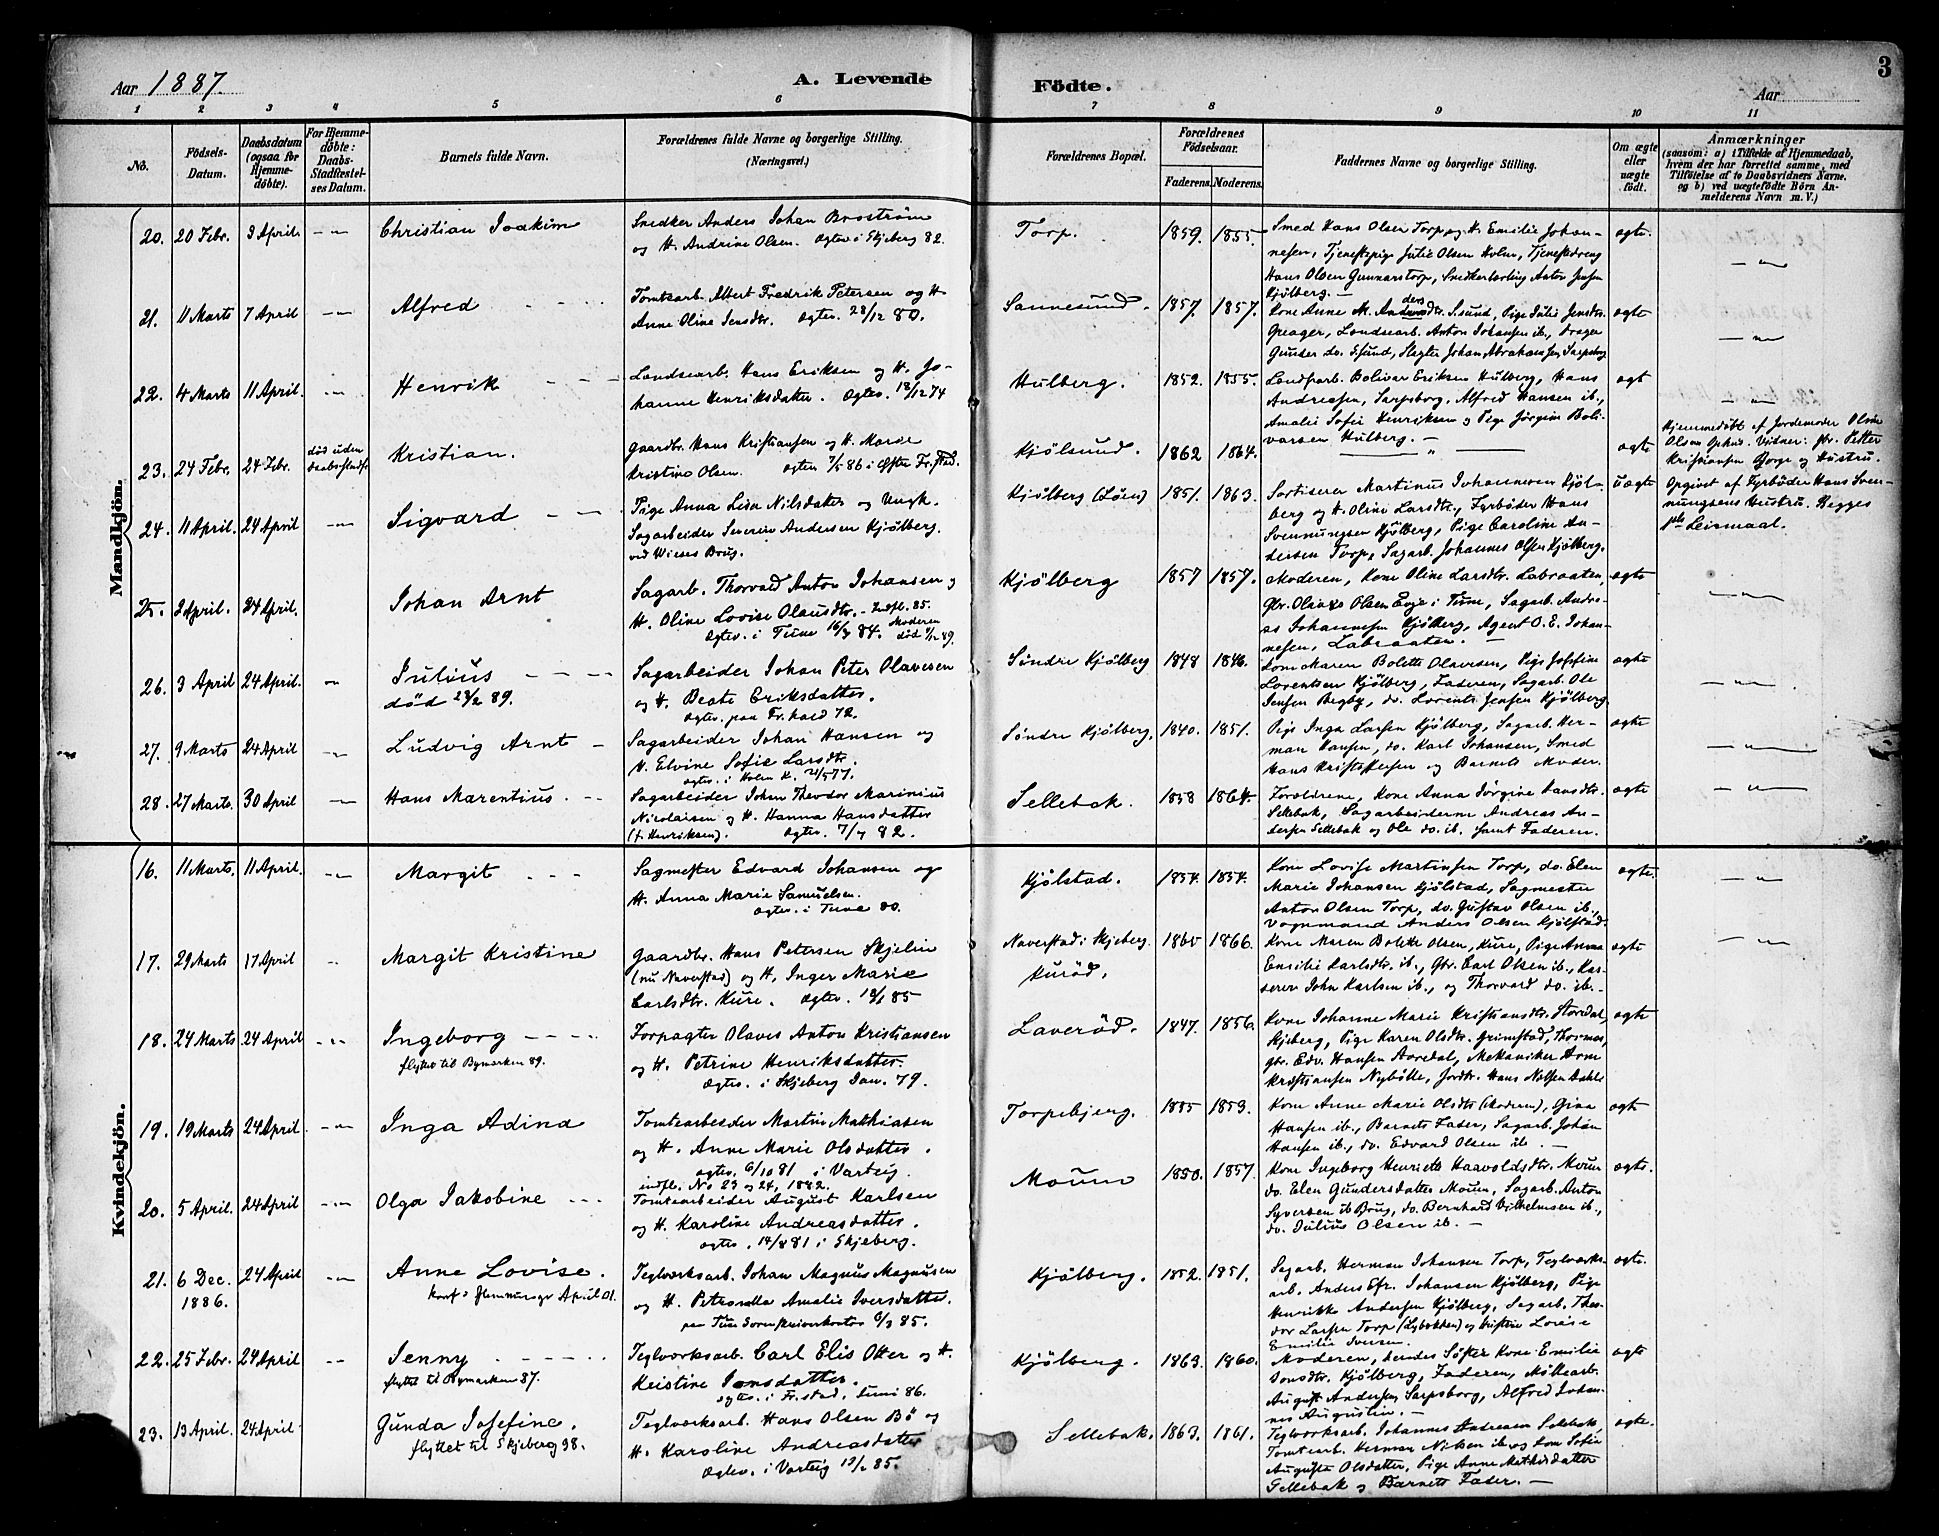 Aar 1887. A. Levende Födte. Aar 3
1 2 3 4 5 6 7 8 9 10 11
No. Födsels-Datum. Daabsdatum (ogsaa for Hjemmedöbte). For Hjemmedöbte: Daabs-Stadfæstelses Datum. Barnets fulde Navn. Forældrenes fulde Navne og borgerlige Stilling. (Næringsvei.) Forældrenes Bopæl. Forældrenes Födselsaar. Faderens. Moderens. Faddernes Navne og borgerlige Stilling. Om ægte eller uægte födt. Anmærkninger (saasom: a) i Tilfælde af Hjemmedaab, hvem der har forrettet samme, med Tilföielse af to Daabsvidners Navne, og b) ved uægtefödte Börn Anmelderens Navn m. V.)
Mandkjön.
20. 20 Febr. 3 April. Christian Joakim
Snedker Anders Johan Broström
og H. Andrine Olsen. Ægtev. i Skjeberg 82.
Torp. 1859. 1855.
Smed Hans Olsen Torp og H. Emilie Johan-
nesen, Tjenestepige Julie Olsen Holm, Tjenestedreng
Hans Olsen Gunnarstorp, Snedkerlærling Anton Jensen
Kjölberg. —
ægte.
21. 11 Marts 7 April Alfred
Tomtearb. Albert Fredrik Petersen og H.
Anne Oline Jensdtr. Ægtev. 28/12 80.
Sannesund. 1857. 1857.
Kone Anne M. Andersdtr. S.sund, Pige Julie Jensdtr.
Greager, Landsearb. Anton Johansen ib., Drager
Gunder do. S.sund, Slagter Johan Abrahamsen Sarpsborg
ægte
22. 4 Marts 11 April. Henrik
Landsearb. Hans Eriksen og H. Jo-
hanne Henriksdatter. Ægtev. 18/12 74
Hulberg. 1852. 1855.
Landsearb. Bolivar Eriksen Hulberg, Hans
Andreasen, Sarpsborg, Alfred Hansen ib.,
Amalie Sofie Henriksen og Pige Jörgine Boli-
varsen Hulberg. —
ægt
23. 24 Febr. 24 Febr. död uden Daabsstadf. Kristian.
Gaardbr. Hans Kristiansen og H. Marie
Kristine Olsen. Ægtev. 7/5 86 i Östre Fr.sted.
Kjölsund. 1862 1864.
ægte
Hjemmedöbt af Jordemoder Oline
Olsen Vidner: gbr. Petter
Kristiansen Borge og Hustru.
24. 11 April. 24 April Sigvard
Pige Anna Lisa Nilsdatter og Ungk.
Sagarbeider Severin Andersen Kjölberg.
ved Wieses Brug.
Kjölberg (Löen) 1851. 1863.
Sortiserer Martinus Johannesen Kjöl-
berg og H. Oline Larsdtr., Fyrböder Hans
Svennungsen Kjölberg, Pige Caroline An-
dersen Torp, Sagarb. Johannes Olsen Kjölberg.
Uægte
Opgivet af Fyrböder Hans Sven-
nungsens Hustru. Begges
1ste Leiermaal.
25. 2 April. 24 April. Johan Arnt
Sagarb. Thorvald Anton Johansen og
H. Oline Lovise Olausdtr. — Indfl. 85.
Ægtev. i Tune 84. Moderen död 89.
Kjölberg 1857 1857.
Moderen, Kone Oline Larsdtr. Labraaten,
Gbr. Olaves Olsen Evje i Tune, Sagarb. Andre-
as Johannesen Kjölberg, Agent O. E. Johan-
nesen, Labraaten. —
ægte
26. 3 April 24 April. Julius
död 23/2 89.
Sagarbeider Johan Peter Olavesen
og H. Beate Eriksdatter.
Ægtev. paa Fr.hald 72.
Söndre Kjölberg 1848 1846.
Kone Maren Bolette Olavesen, Pige Josefine
Lorentsen Kjölberg, Faderen, Sagarb. Ole
Jensen Begby, do. Lorents Jensen Kjölberg.
ægte
27. 9 Marts 24 April Ludvig Arnt
Sagarbeider Johan Hansen og
H. Elvine Sofie Larsdtr.
Ægtev. i Holm K. 77.
Söndre Kjölberg. 1840. 1851.
Pige Inga Larsen Kjölberg, Sagarb. Her-
man Hansen, do. Karl Johansen, Smed
Hans Kristoffersen og Barnets Moder.
ægte
28. 27 Marts. 30 April Hans Marentius.
Sagarbeider Johan Theodor Marinius
Nicolaisen og H. Hanna Hansdatter
(f. Henriksen). Ægtev. 7/7 82.
Sellebak. 1858 1864.
Forældrene, Kone Anna Jörgine Hansdtr.
Sellebak, Sagarbeiderne Andreas An-
dersen Sellebak og Ole do. ib. samt Faderen.
ægte
Kvindekjön.
16. 11 Marts. 11 April. Margit
Sagmester Edvard Johansen og
H. Anna Marie Samuelsen.
Ægtev. i Tune 80.
Kjölstad. 1854. 1854.
Kone Lovise Martinsen Torp, do. Elen
Marie Johansen Kjölstad, Sagmester
Anton Olsen Torp, do. Gustav Olsen ib.,
Vognmand Anders Olsen Kjölstad.
ægte.
17. 29 Marts 17 April Margit Kristine
Gaardbr. Hans Petersen Skjelin
(nu Naverstad) og H. Inger Marie
Carlsdtr. Kure. Ægtev. 85
Naverstad i Skjeberg.
Kuröd. 1860 1866.
Kone Maren Bolette Olsen, Kure, Pige Anna
Emilie Karlsdtr. ib., Gbr. Carl Olsen ib., Kas-
serer John Karlsen ib., og Thorvard do. ib. —
ægte
18. 24 Marts 24 April Ingeborg
flyttet til Bymarken 89.
Forpagter Olaves Anton Kristiansen
og H. Petrine Henriksdatter.
Ægtev. i Skjeberg Jan. 79.
Laveröd. 1847. 1856.
Kone Johanne Marie Kristiansdtr. Stordal,
Skjeberg, Pige Karen Olsdtr. Grimstad, Thosnes,
gbr. Edv. Hansen Aaredal, Mekaniker Arne
Kristiansen Nybölle, Jordbr. Hans Nilsen Dahle
ægte
19. 19 Marts 24 April. Inga Adina
Tomtearbeider Martin Mathiasen
og H. Anne Marie Olsdatter.
Ægtev. 6/10 81 i Varteig.
indfl. No 23 og 24, 1882.
Torpebjerg. 1855 1853.
Kone Anne Marie Olsdtr (Moderen), Gina
Hansen ib., Barnets Fader, Sagarb. Johan
Hansen ib., do. Edvard Olsen ib. —
ægte
20. 5 April. 24 April Olga Jakobine
Tomtearbeider August Karlsen
og H. Karoline Andreasdatter.
Ægtev. 14/8 81 i Skjeberg.
Moum 1850. 1857
Kone Ingeborg Henriette Haavoldsdtr. Moum
do. Elen Gundersdatter Moum, Sagarb. Anton
Syversen ib Brug, do. Bernhard Vilhelmsen ib.,
do. Julius Olsen ib. —
ægte.
21. 6 Dec. 1886. 24 April Anne Lovise.
konf. i Glemminge April 01.
Teglværksarb. Johan Magnus Magnusen
og H. Petronelle Amalie Iversdatter.
paa Tune Sorenskriverkontor 85.
Kjölberg. 1852. 1851.
Sagarb. Herman Johansen Torp, Teglværks-
arb. Anders Efr. Johansen Kjölberg, Pige
Henrikke Andersen Kjölberg, Sagarb. Theo-
dor Larsen Torp (Lybækken) og Kristine Lovise
Emilie Iversen.
ægte.
22. 25 Febr. 24 April Jenny
flyttet til Bymarken 87.
Teglværksarb. Carl Elis Otter og H.
Kristine Jonsdatter.
Ægtev. i Fr.stad, Juni 86.
Kjölberg. 1863. 1860.
Moderen, hendes Söster Kone Emilie
Jonsdtr. Kjölberg, Faderen, Möllearb.
August Andersen Sarpsborg, Alfred Johan-
nes Augustin. —
ægte
23. 13 April. 24 April. Gunda Josefine.
flyttet til Skjeberg 98.
Teglværksarb. Hans Olsen Bö og
H. Karoline Andreasdatter
Ægtev. i Varteig 85.
Sellebak. 1863. 1861.
Teglværksarb. Johannes Andresen Sellebak,
Tomtearb. Herman Nilsen ib. og Kone Sofie
Augusta Olsdatter, Pige Anne Mathisdatter
Sellebak og Barnets Fader. —
ægte.